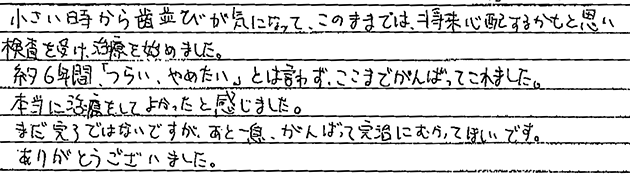 小さい時から歯並びが気になって、このままでは、将来心配するかもと思い
検査を受け、治療を始めました。
約6年間、「つらい、やめたい。」とは言わず、ここまでがんばってこれました。
本当に治療をしてよかったと感じました。
まだ完了ではないですが、あと一息、がんばって完治にむかってほしいです。
ありがとうございました。